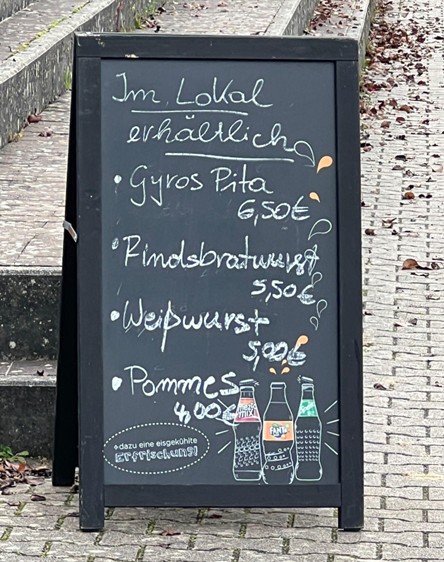 Im Lokal
erhältlich
• Gyros Pita
6,50€
• Rindsbratwurst
5,50€
• Weißwurst
5,00€
• Pommes
4,00€
mezzo mix
FANTA
+dazu eine eisgekühlte
Erfrischung!